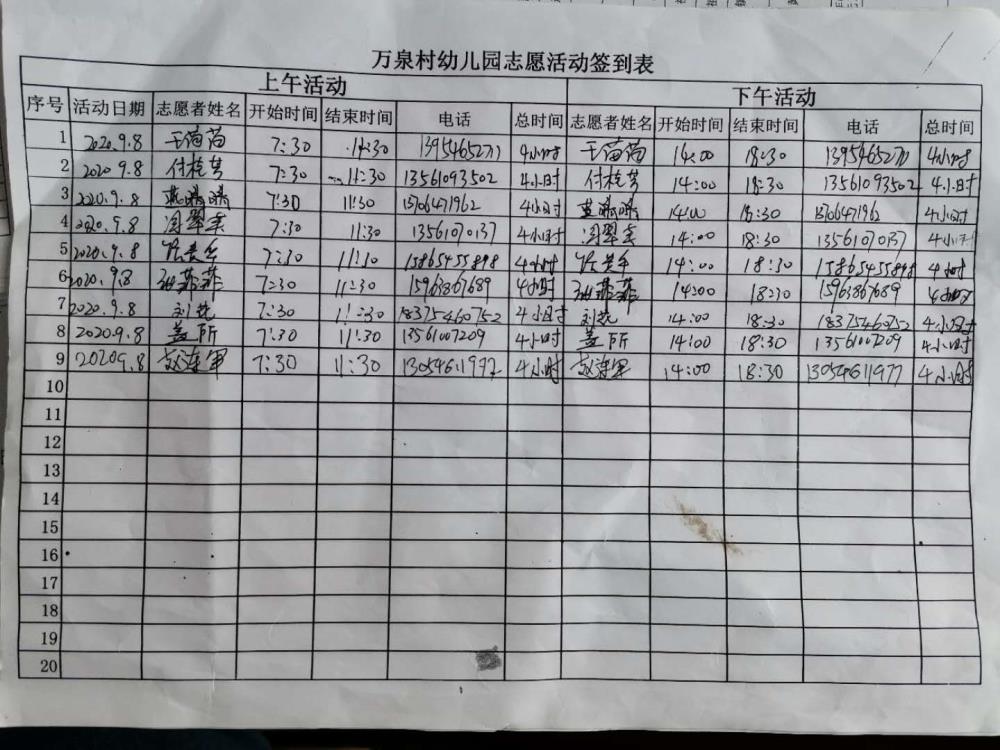 万泉村幼儿园志愿活动签到表
上午活动 下午活动
序号 活动日期 志愿者姓名 开始时间 结束时间 电话 总时间 志愿者姓名 开始时间 结束时间 电话 总时间
1 2020.9.8 王苗苗 7:30 11:30 4小时 王苗苗 14:00 18:30 4小时
2 2020 9.8 付桂芳 7:30 11:30 13561093502 4小时 付桂芳 14:00 18:30 13561093502 4小时
3 2020.9.8 7:30 11:30 13706471962 4小时 14:00 18:30 13706471962 4小时
4 2020.9.8 7:30 11:30 13561070137 4小时 14:00 18:30 13561070137 4小时
5 2020.9.8 7:30 11:30 15865455898 4小时 14:00 18:30 15865455898 4小时
6 2020.9.8 7:30 11:30 15963867689 4小时 14:00 18:30 15963867689 4小时
7 2020.9.8 刘艳 7:30 11:30 18375460752 4小时 刘艳 14:00 18:30 18375460752 4小时
8 2020.9.8 盖所 7:30 11:30 13561007209 4小时 盖所 14:00 18:30 13561007209 4小时
9 2020 9.8 赵连军 7:30 11:30 13054611977 4小时 赵连军 14:00 18:30 13054611977 4小时
10
11
12
13
14
15
16
17
18
19
20